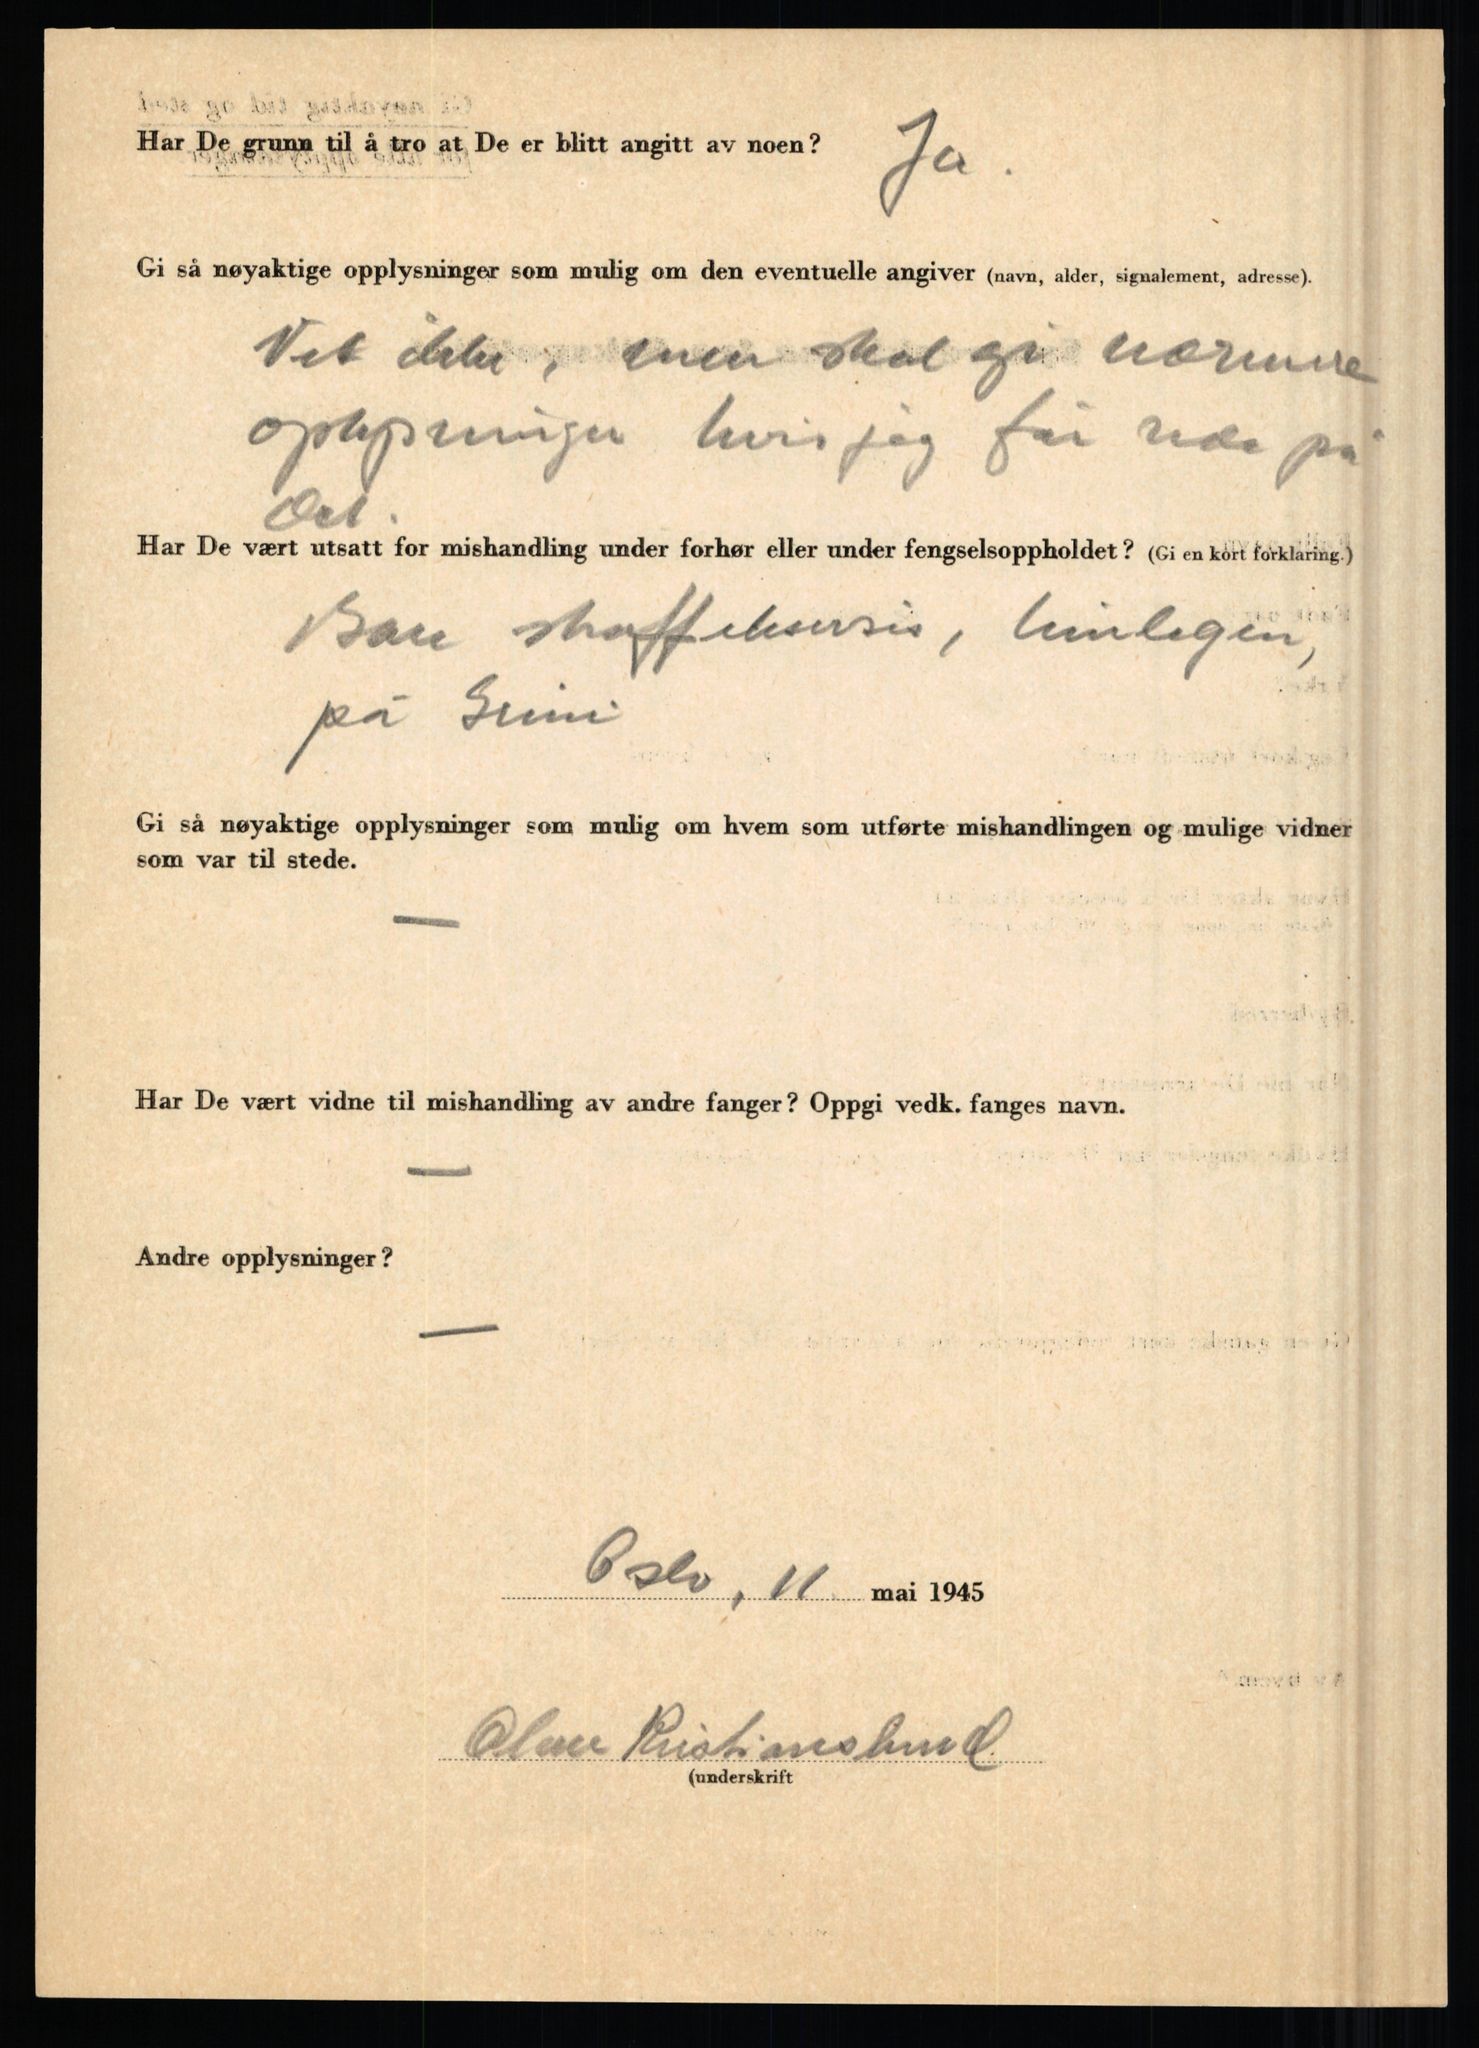 Har De grunn til å tro at De er blitt angitt av noen? Ja.
Gi så nøyaktige opplysninger som mulig om den eventuelle angiver (navn, alder, signalement, adresse).
Vet ikke, men skal gi nærmere
oplysninger hvis jeg får rede på
det.
Har De vært utsatt for mishandling under forhør eller under fengselsoppholdet? (Gi en kort forklaring.)
Bare straffeksersis,
på Grini
Gi så nøyaktige opplysninger som mulig om hvem som utførte mishandlingen og mulige vidner
som var til stede.
—
Har De vært vidne til mishandling av andre fanger? Oppgi vedk. fanges navn.
—
Andre opplysninger?
—
Oslo, 11 mai 1945
Kristianslund
(underskrift